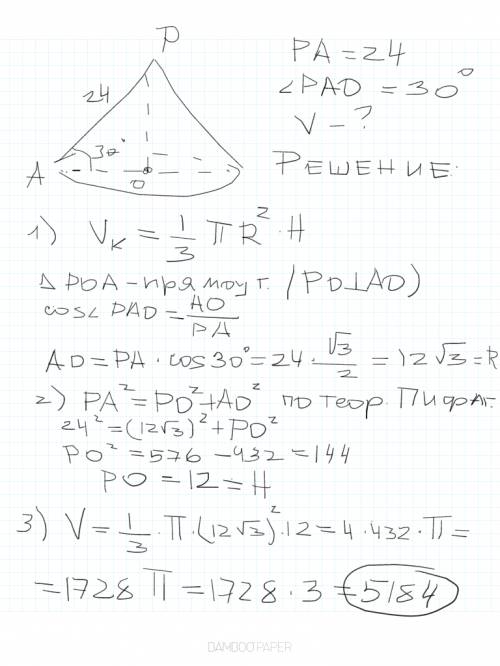 P
PA = 24
24
∠PAO = 30°
V - ?
30°
A
O
РЕШЕНИЕ:
1) Vк = 1/3 πR² · H
Δ POA - прямоуг. (PO⊥AO)
cos∠PAO = AO/PA
AO = PA · cos30° = 24 · √3/2 = 12√3 = R
2) PA² = PO² + AO² по теор. Пифаг.
24² = (12√3)² + PO²
PO² = 576 - 432 = 144
PO = 12 = H
3) V = 1/3 · π · (12√3)² · 12 = 4 · 432 · π =
= 1728 π = 1728 · 3 = 5184
BAMBOO PAPER